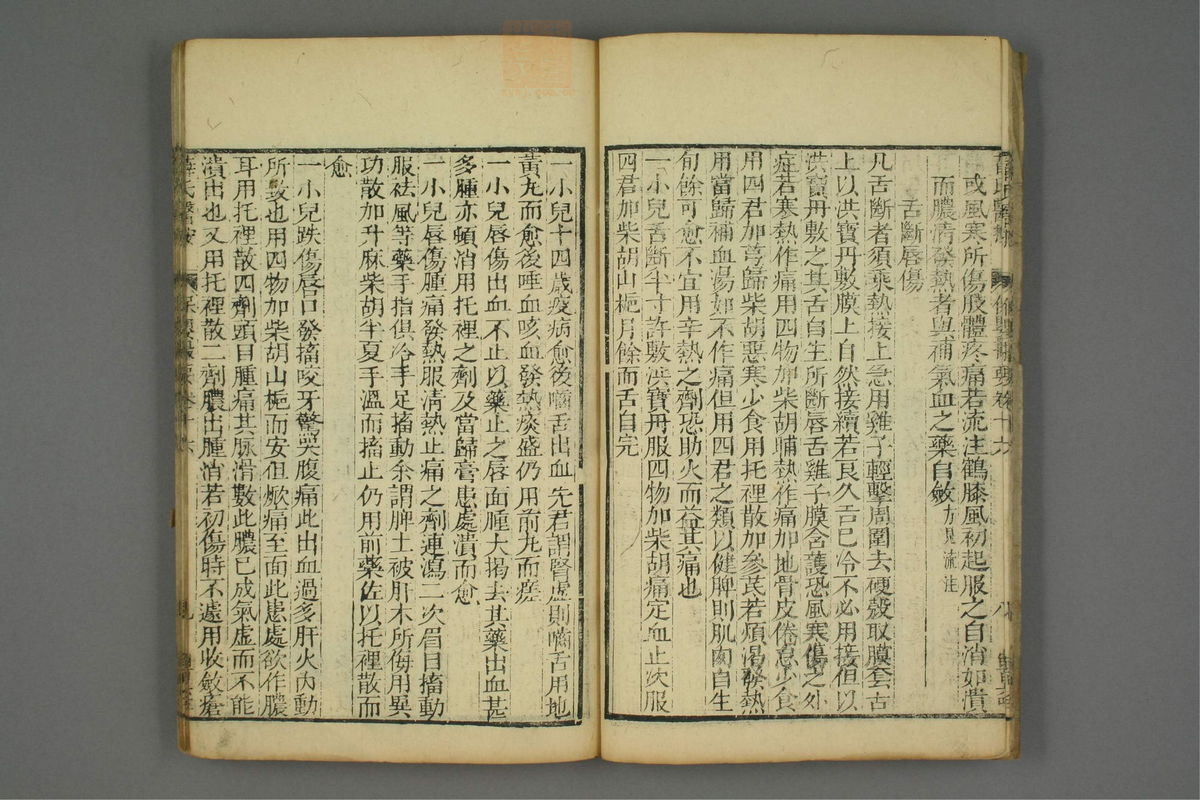 或風寒所傷肢體疼痛若流注鶴膝風初起服之自消如潰
而膿清發熱者與補氣血之藥自斂方見流注
舌斷唇傷
凡舌斷者須乘熱接上急用雞子輕擊周圍去硬殼取膜套舌
上以洪寶丹敷膜上自然接續若良久舌已冷不必用接但以
洪寶丹敷之其舌自生所斷唇舌雞子膜含護恐風寒傷之外
症若寒熱作痛用四物加柴胡晡熱作痛加地骨皮倦怠少食
用四君加芎歸柴胡惡寒少食用托裡散加參芪若煩渴發熱
用當歸補血湯如不作痛但用四君之類以健脾則肌肉自生
旬餘可愈不宜用辛熱之劑恐助火而益其痛也
一小兒舌斷半寸許敷洪寶丹服四物加柴胡痛定血止次服
四君加柴胡山梔月餘而舌自完
一小兒十四歲疫病愈後嚼舌出血先君謂腎虛則嚼舌用地
黃丸而愈後唾血咳血發熱痰盛仍用前丸而痊
一小兒唇傷出血不止以藥止之唇面腫大揭去其藥出血甚
多腫亦頓消用托裡之劑及當歸膏患處潰而愈
一小兒唇傷腫痛發熱服清熱止痛之劑連瀉二次眉目搐動
服祛風等藥手指俱冷手足搐動余謂脾土被肝木所侮用異
功散加升麻柴胡半夏手溫而搐止仍用前藥佐以托裡散而
愈
一小兒跌傷唇口發搐咬牙驚哭腹痛此出血過多肝火內動
所致也用四物加柴胡山梔而安但焮痛至面此患處欲作膿
耳用托裡散四劑頭目腫痛其脉滑數此膿已成氣虛而不能
潰出也又用托裡散二劑膿出腫消若初傷時不遽用收斂瘡